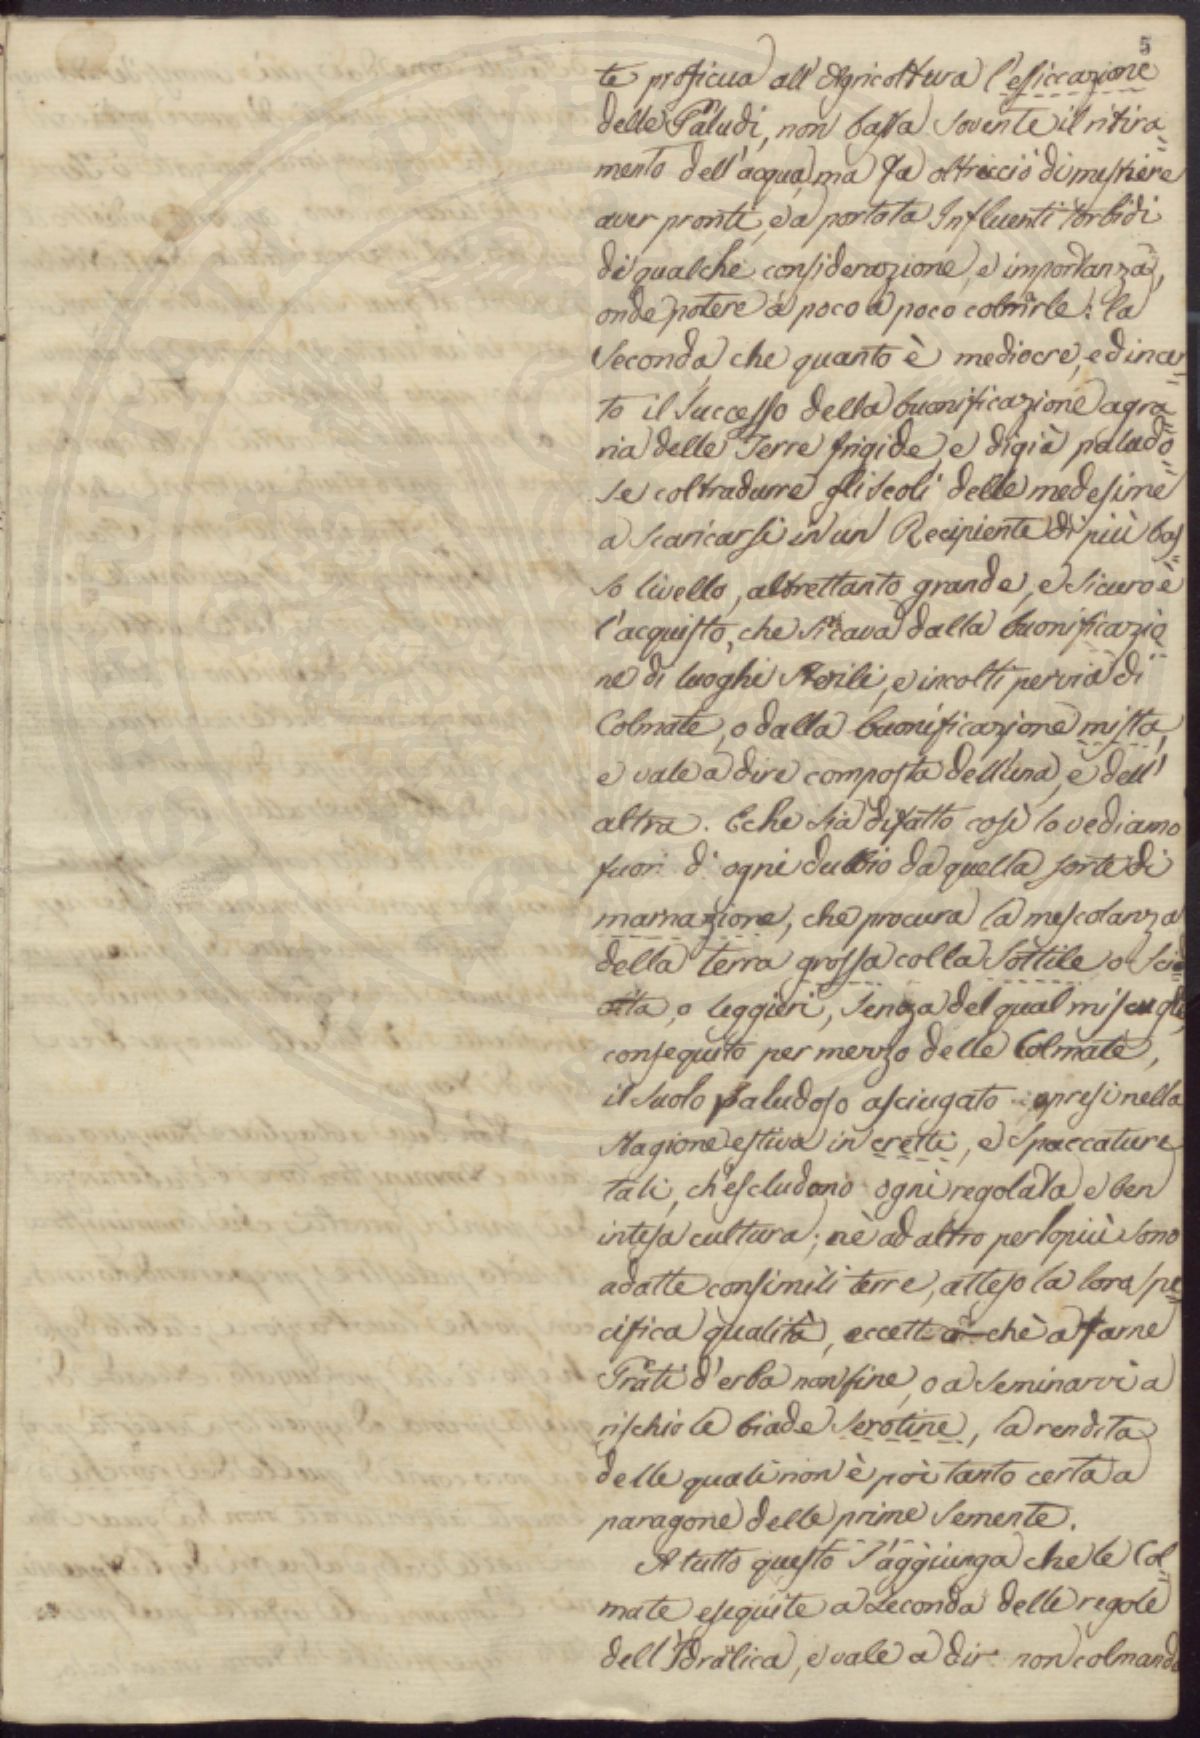 5
te proficua all'Agricoltura l'essiccazione
delle Paludi, non basta sovente il ritira=
mento dell'acqua, ma fa oltracciò di mestiere
aver pronti, e a portata Influenti torbidi
di qualche considerazione, e importanza,
onde potere a poco a poco colmirle: la
Seconda, che quanto è mediocre, ed incer=
to il Successo della buonificazione agra=
ria delle Terre frigide, e digià paludo=
se coltradurre gli scoli delle medesime
a scaricarsi in un Recipiente di più bas=
so livello, altrettanto grande, e sicuro è
l'acquisto, che si cava dalla buonificazio=
ne di luoghi sterili, e incolti per via di
Colmate, o dalla buonificazione mista,
e vale a dire composta dell'una, e dell'
altra. E che sia difatto così lo vediamo
fuori di ogni dubbio da quella sorte di
marnazione, che procura la mescolanza
della terra grossa colla sottile o scio=
lta, o leggieri, senza del qual miscuglio,
conseguito per mezzo delle Colmate,
il suolo paludoso asciugato apresi nella
stagione estiva in cretti, e spaccature
tali, ch'escludono ogni regolata, e ben
intesa cultura; nè ad altro per lo più sono
adatte consimili terre, atteso la loro spe=
cifica qualità, eccetto chè a farne
Prati d'erba non fine, o a seminarvi a
rischio le biade serotine, la rendita
delle quali non è poi tanto certa a
paragone delle prime semente.
A tutto questo s'aggiunga che le Col=
mate eseguite a seconda delle regole
dell'Idralica, e vale a dir non colmando